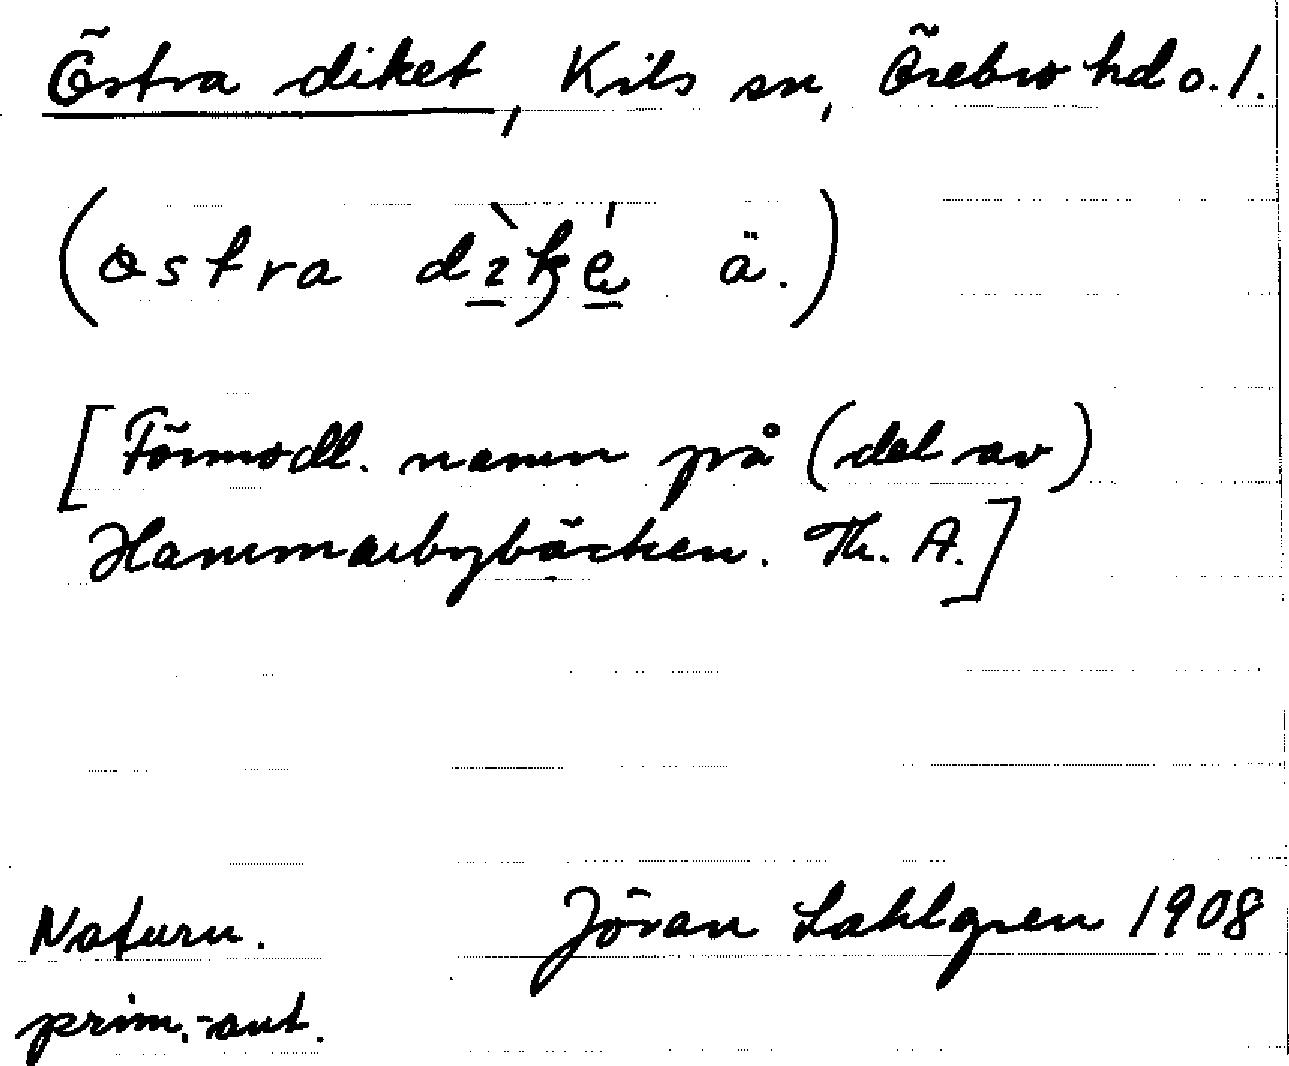 Östra diket, Kils sn, Örebro hd o. l.
(östra dìké ä.)
[Förmodl. namn på (del av)
Hammarbybäcken. Th. A.]
Naturn. Jöran Sahlgren 1908
prim.-ant.